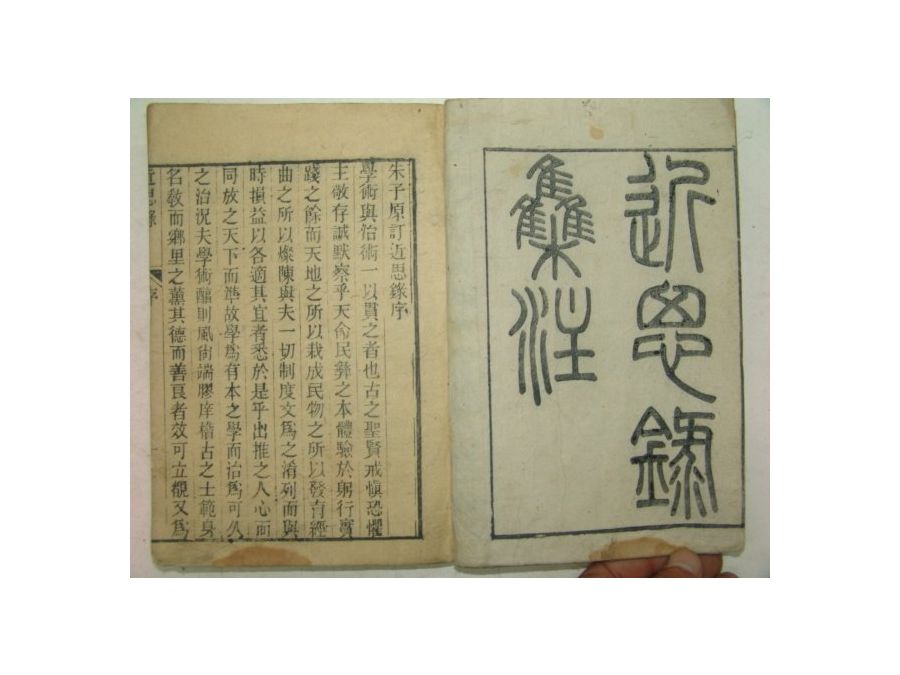 近思錄
集注
朱子原訂近思錄序
學術與治術一以貫之者也古之聖賢戒慎恐懼
主敬存誠默察乎天命民彝之本體驗於躬行實
踐之餘而天地之所以栽成民物之所以發育經
曲之所以燦陳與夫一切制度文爲之淆列而與
時損益以各適其宜者悉於是乎出推之人心而
同放之天下而準故學爲有本之學而治爲可久
之治況夫學術醇則風尙端膠庠稽古之士範身
名敎而鄉里之薰其德而善良者效可立覩又爲
近思錄 序